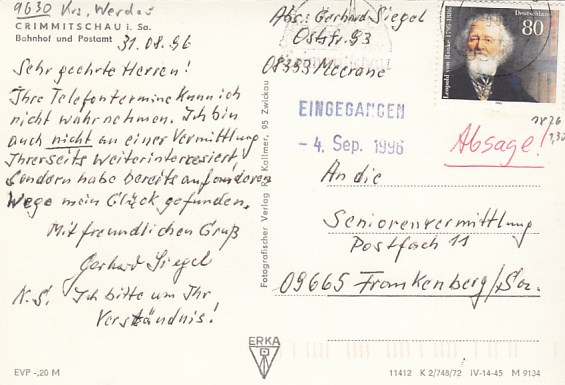 9630 Krs. Werdau
CRIMMITSCHAU i. Sa.
Bahnhof und Postamt
31.08.96
Sehr geehrte Herren!
Ihre Telefontermine kann ich
nicht wahrnehmen. Ich bin
auch nicht an einer Vermittlung
Ihrerseits weiter interessiert,
sondern habe bereits auf anderen
Wege mein Glück gefunden.
Mit freundlichen Gruß
Gerhard Siegel
N.S. Ich bitte um Ihr
Verständnis!
EVP -,20 M
Fotografischer Verlag R. Kallmer, 95 Zwickau
Abs.: Gerhard Siegel
Oststr. 93
08393 Meerane
Deutschland
80
Leopold von Ranke 1795-1886
EINGEGANGEN
- 4. Sep. 1996
Absage!
An die
Seniorenvermittlung
Postfach 11
09665 Frankenberg/Sa.
ERKA
11412 K 2/748/72 IV-14-45 M 9134